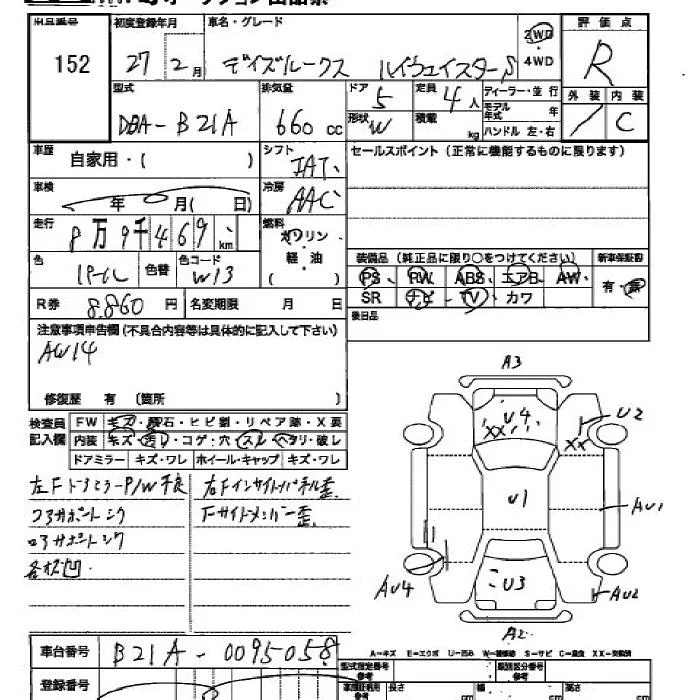 出品番号 初度登録年月 車名・グレード 2WD 4WD 評価点
152 27 2月 デイズルークス ハイウェイスターS R
型式 排気量 ドア 5 定員 4人 ディーラー・並行
モデル年式 年
外装 内装
DBA-B21A 660 cc 形状 W 積載 kg ハンドル 左・右 / C
車歴 自家用・( ) シフト IAT セールスポイント(正常に機能するものに限ります)
車検 年 月( 日) 冷房 AAC
走行 8万9千469 km 燃料 ガソリン・軽・油 ( )
色 パール 色替 色コード W13
装備品(純正品に限り○をつけてください) 新車保証書
PS PW ABS エアB AW 有・無
SR ナビ TV カワ
R券 8.860円 名変期限 月 日 後日品
注意事項申告欄(不具合内容等は具体的に記入して下さい)
AW14
修復歴 有 (箇所 )
検査員記入欄 FW キズ・飛石・ヒビ割・リペア跡・X要
内装 キズ・汚レ・コゲ・穴・スレ・ヘタリ・破レ
ドアミラー キズ・ワレ ホイール・キャップ キズ・ワレ
左Fドアミラー P/W不良 右Fインサイドパネル歪
コアサポートシワ Fサイドメンバー歪
ロアサポートシワ
各板凹
A3
U4 XX U2 XX
U1 AU1
AU4 U3 AU2
A2
車台番号 B21A-0095058
A-キズ E-エクボ U-凹み W-補修跡 S-サビ C-腐食 XX-交換済
登録番号
型式指定番号 参考 類別区分番号 参考
長さ cm 幅 cm 高さ cm